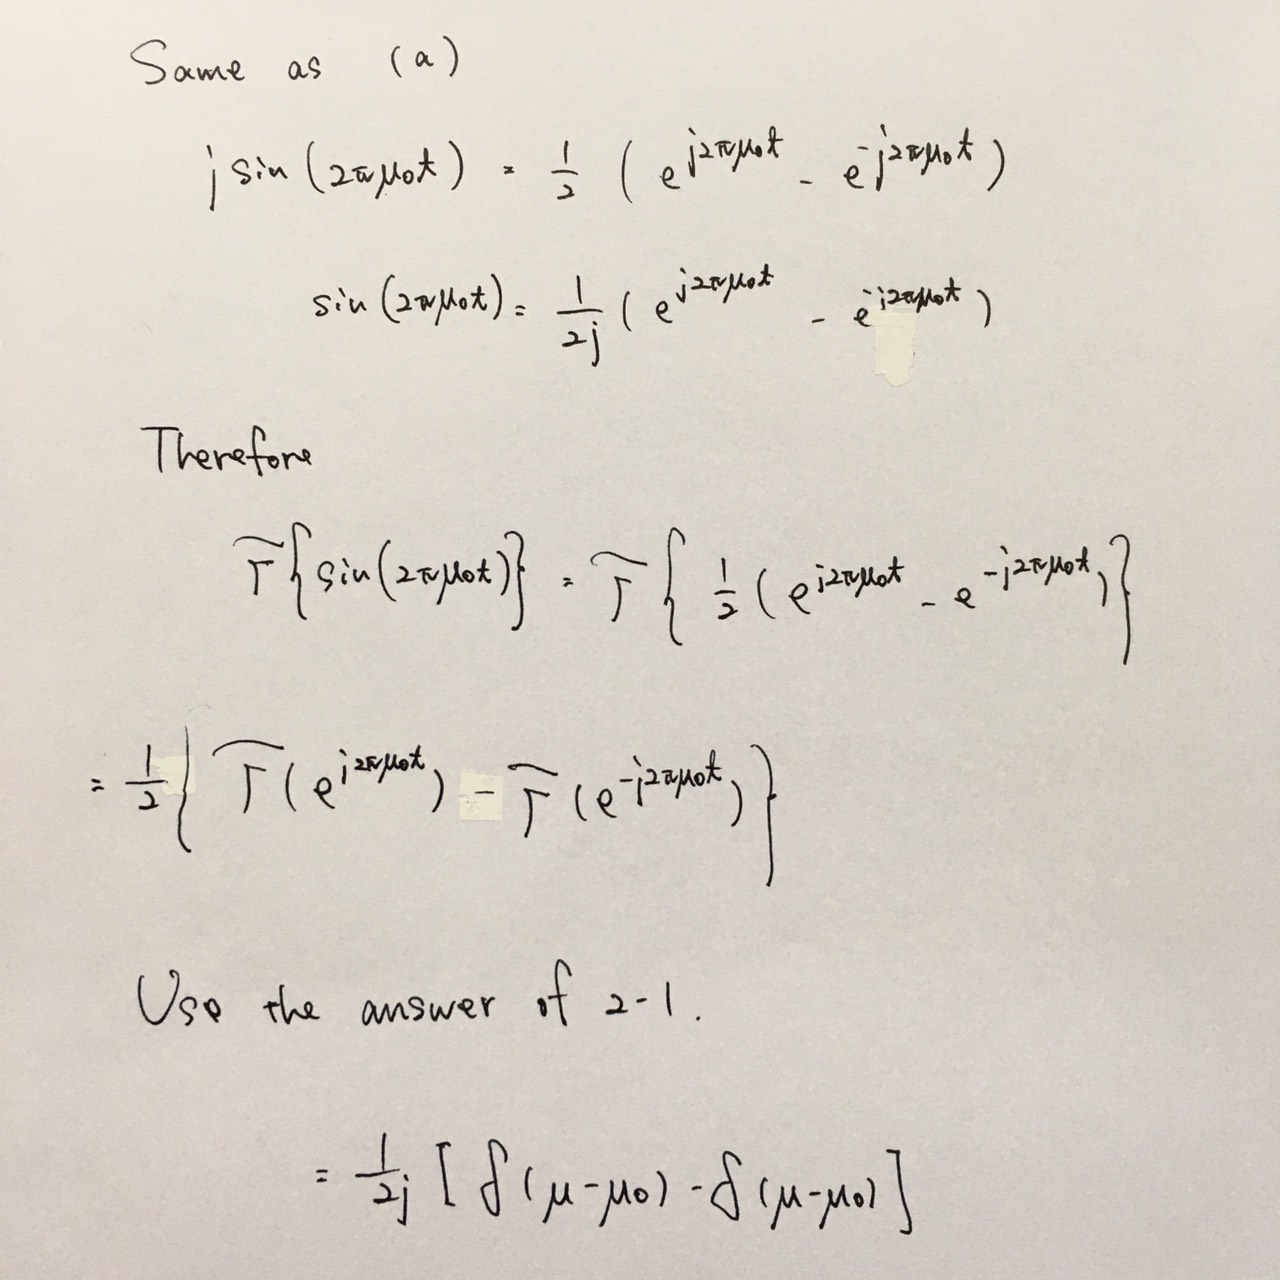 Same as (a)
j sin(2πμ₀t) = 1/2 ( e^{j2πμ₀t} - e^{-j2πμ₀t} )
sin(2πμ₀t) = 1/2j ( e^{j2πμ₀t} - e^{-j2πμ₀t} )
Therefore
F{sin(2πμ₀t)} = F{ 1/2 ( e^{j2πμ₀t} - e^{-j2πμ₀t} ) }
= 1/2 { F( e^{j2πμ₀t} ) - F( e^{-j2πμ₀t} ) }
Use the answer of 2-1.
= 1/2j [ δ(μ-μ₀) - δ(μ-μ₀) ]